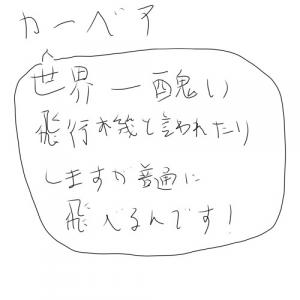 カーベア
世界一醜い
飛行機と言われたり
しますが普通に
飛べるんです!